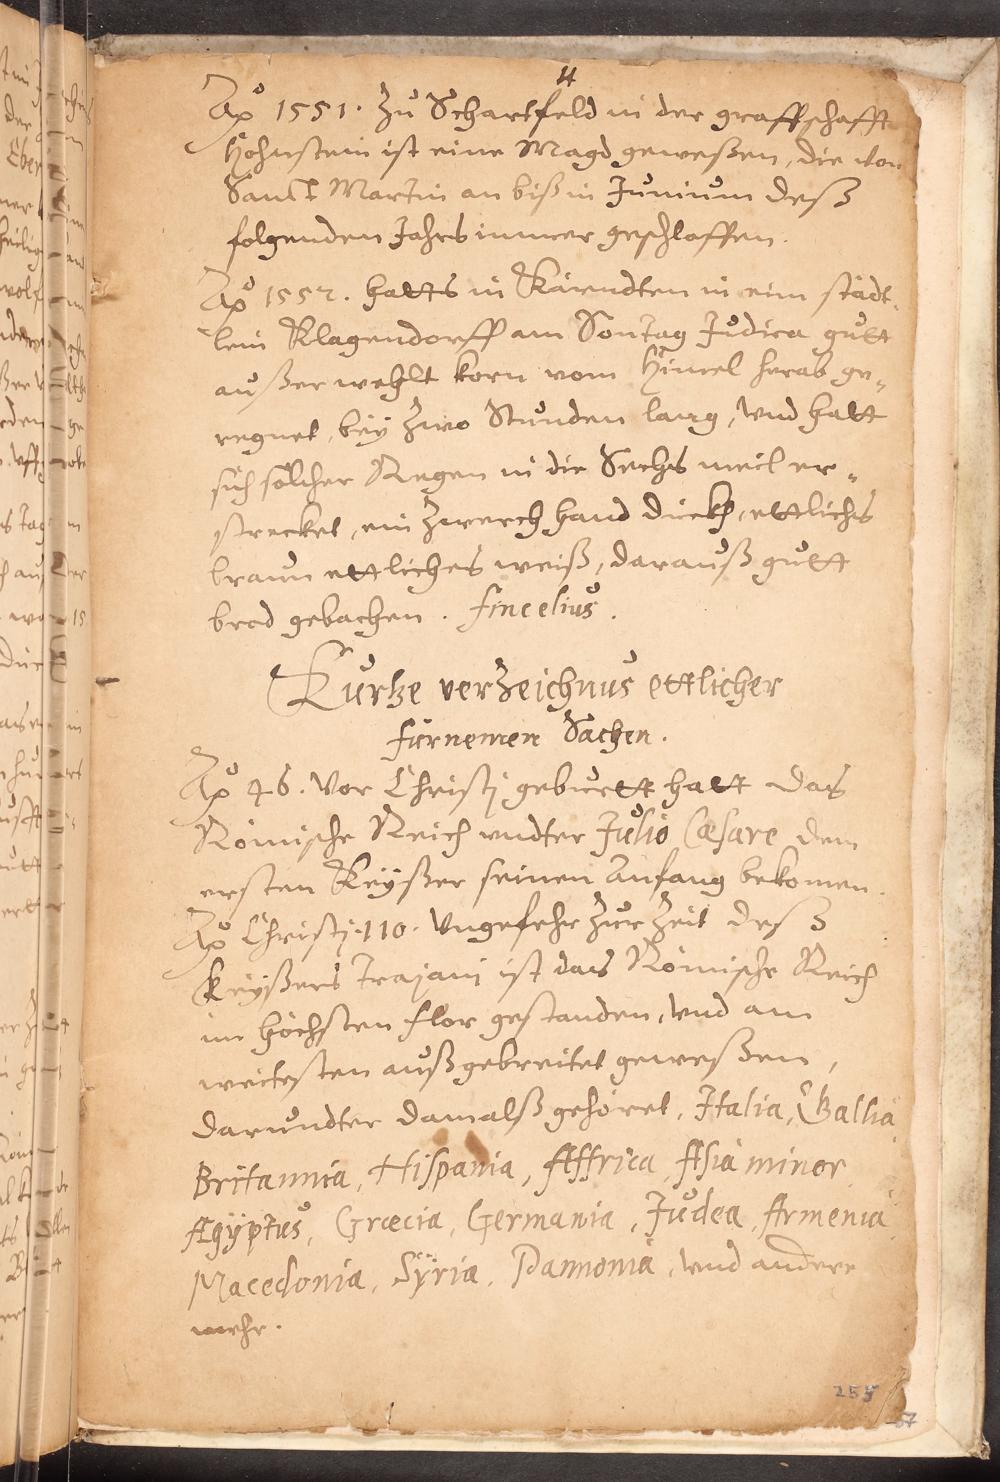 Aō 1551. Zu Schartfeld in der graffschafft
Hohnstein ist eine Magd geweßen, die von
Sanct Martin an biß in Junium deß
folgenden Jahrs immer geschlaffen.
Aō 1552. hatts in Kärndten in eim städt-
lein Klagendorff am Sontag Judica gutt
außerwehlt korn vom Himel herab ge„
regnet, bey Zwo Stunden lang, vnd hatt
sich solcher Regen in die Sechs meil er„
strecket, ein Zwerch hand dückh, ettliches
braun ettliches weiß, darauß gutt
brod gebachen. Fincelius.
Kurtze verzeichnus ettlicher
fürnemen Sachen.
Aō 46. Vor Christj geburtt hatt das
Römische Reich vndter Julio Cæsare dem
ersten Keyßer seinen Anfang bekomen.
Aō Christj. 110. Vngefehr Zur Zeit deß
Keyßers Trajani ist das Römische Reich
im höchsten flor gestanden, vnd am
weitesten außgebreitet geweßen,
darundter damalß gehöret, Italia, Gallia
Britannia, Hispania, Affrica, Asia minor,
Ægÿptus, Græcia, Germania, Judea, Armenia
Macedonia, Sÿria, Pannonia, vnd andere
mehr.
255